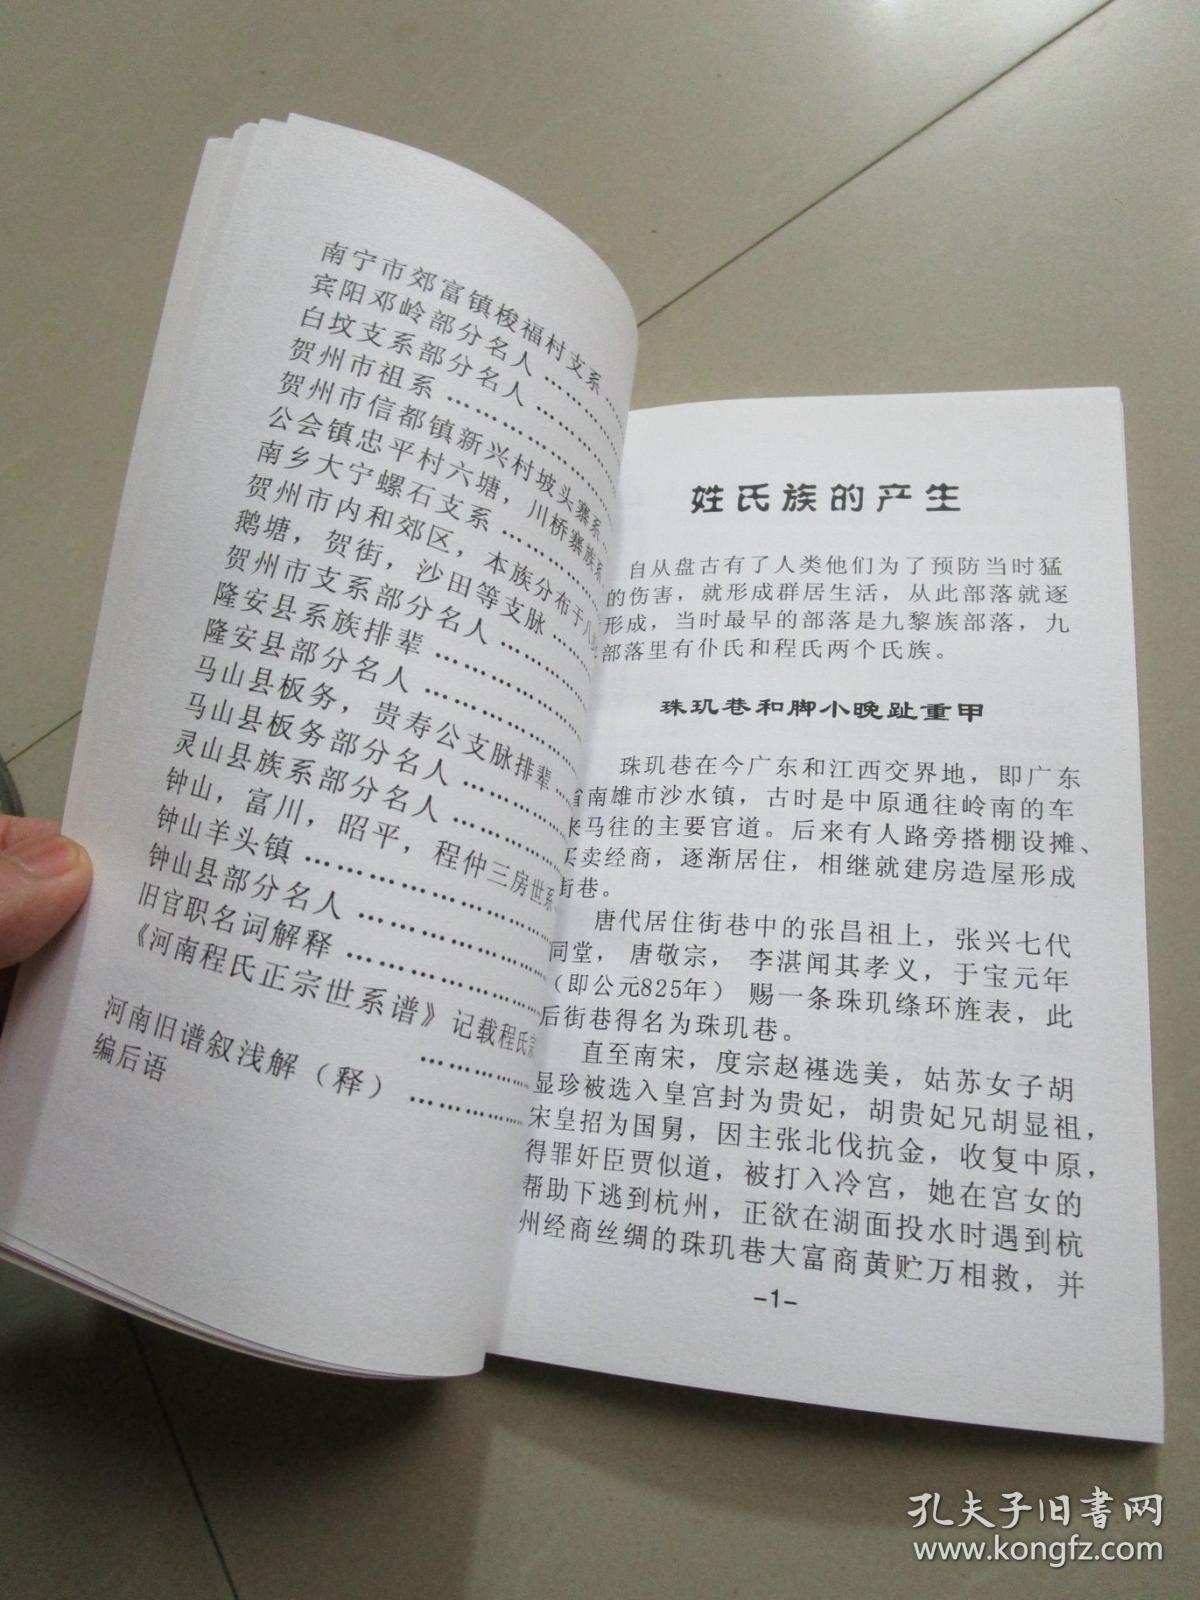 南宁市郊富镇梭福村支系……
宾阳邓岭部分名人…………
白坟支系部分名人…………
贺州市祖系………………
贺州市信都镇新兴村坡头寨系…
公会镇忠平村六塘，川桥寨族系
南乡大宁螺石支系…………
贺州市内和郊区，本族分布于八
鹅塘，贺街，沙田等支脉……
贺州市支系部分名人………
隆安县系族排辈……………
隆安县部分名人……………
马山县板务，贵寿公支脉排辈……
马山县板务部分名人…………
灵山县族系部分名人…………
钟山，富川，昭平，程仲三房世系
钟山羊头镇………………
钟山县部分名人……………
旧官职名词解释……………
《河南程氏正宗世系谱》记载程氏宗
…………
河南旧谱叙浅解（释）…………
编后语
姓氏族的产生
自从盘古有了人类他们为了预防当时猛
的伤害，就形成群居生活，从此部落就逐
形成，当时最早的部落是九黎族部落，九
部落里有仆氏和程氏两个氏族。
珠玑巷和脚小晚趾重甲
珠玑巷在今广东和江西交界地，即广东
省南雄市沙水镇，古时是中原通往岭南的车
来马往的主要官道。后来有人路旁搭棚设摊、
买卖经商，逐渐居住，相继就建房造屋形成
街巷。
唐代居住街巷中的张昌祖上，张兴七代
同堂，唐敬宗，李湛闻其孝义，于宝元年
（即公元825年）赐一条珠玑绦环旌表，此
后街巷得名为珠玑巷。
直至南宋，度宗赵禥选美，姑苏女子胡
显珍被选入皇宫封为贵妃，胡贵妃兄胡显祖，
宋皇招为国舅，因主张北伐抗金，收复中原，
得罪奸臣贾似道，被打入冷宫，她在宫女的
帮助下逃到杭州，正欲在湖面投水时遇到杭
州经商丝绸的珠玑巷大富商黄贮万相救，并
-1-
孔夫子旧书网
www.kongfz.com